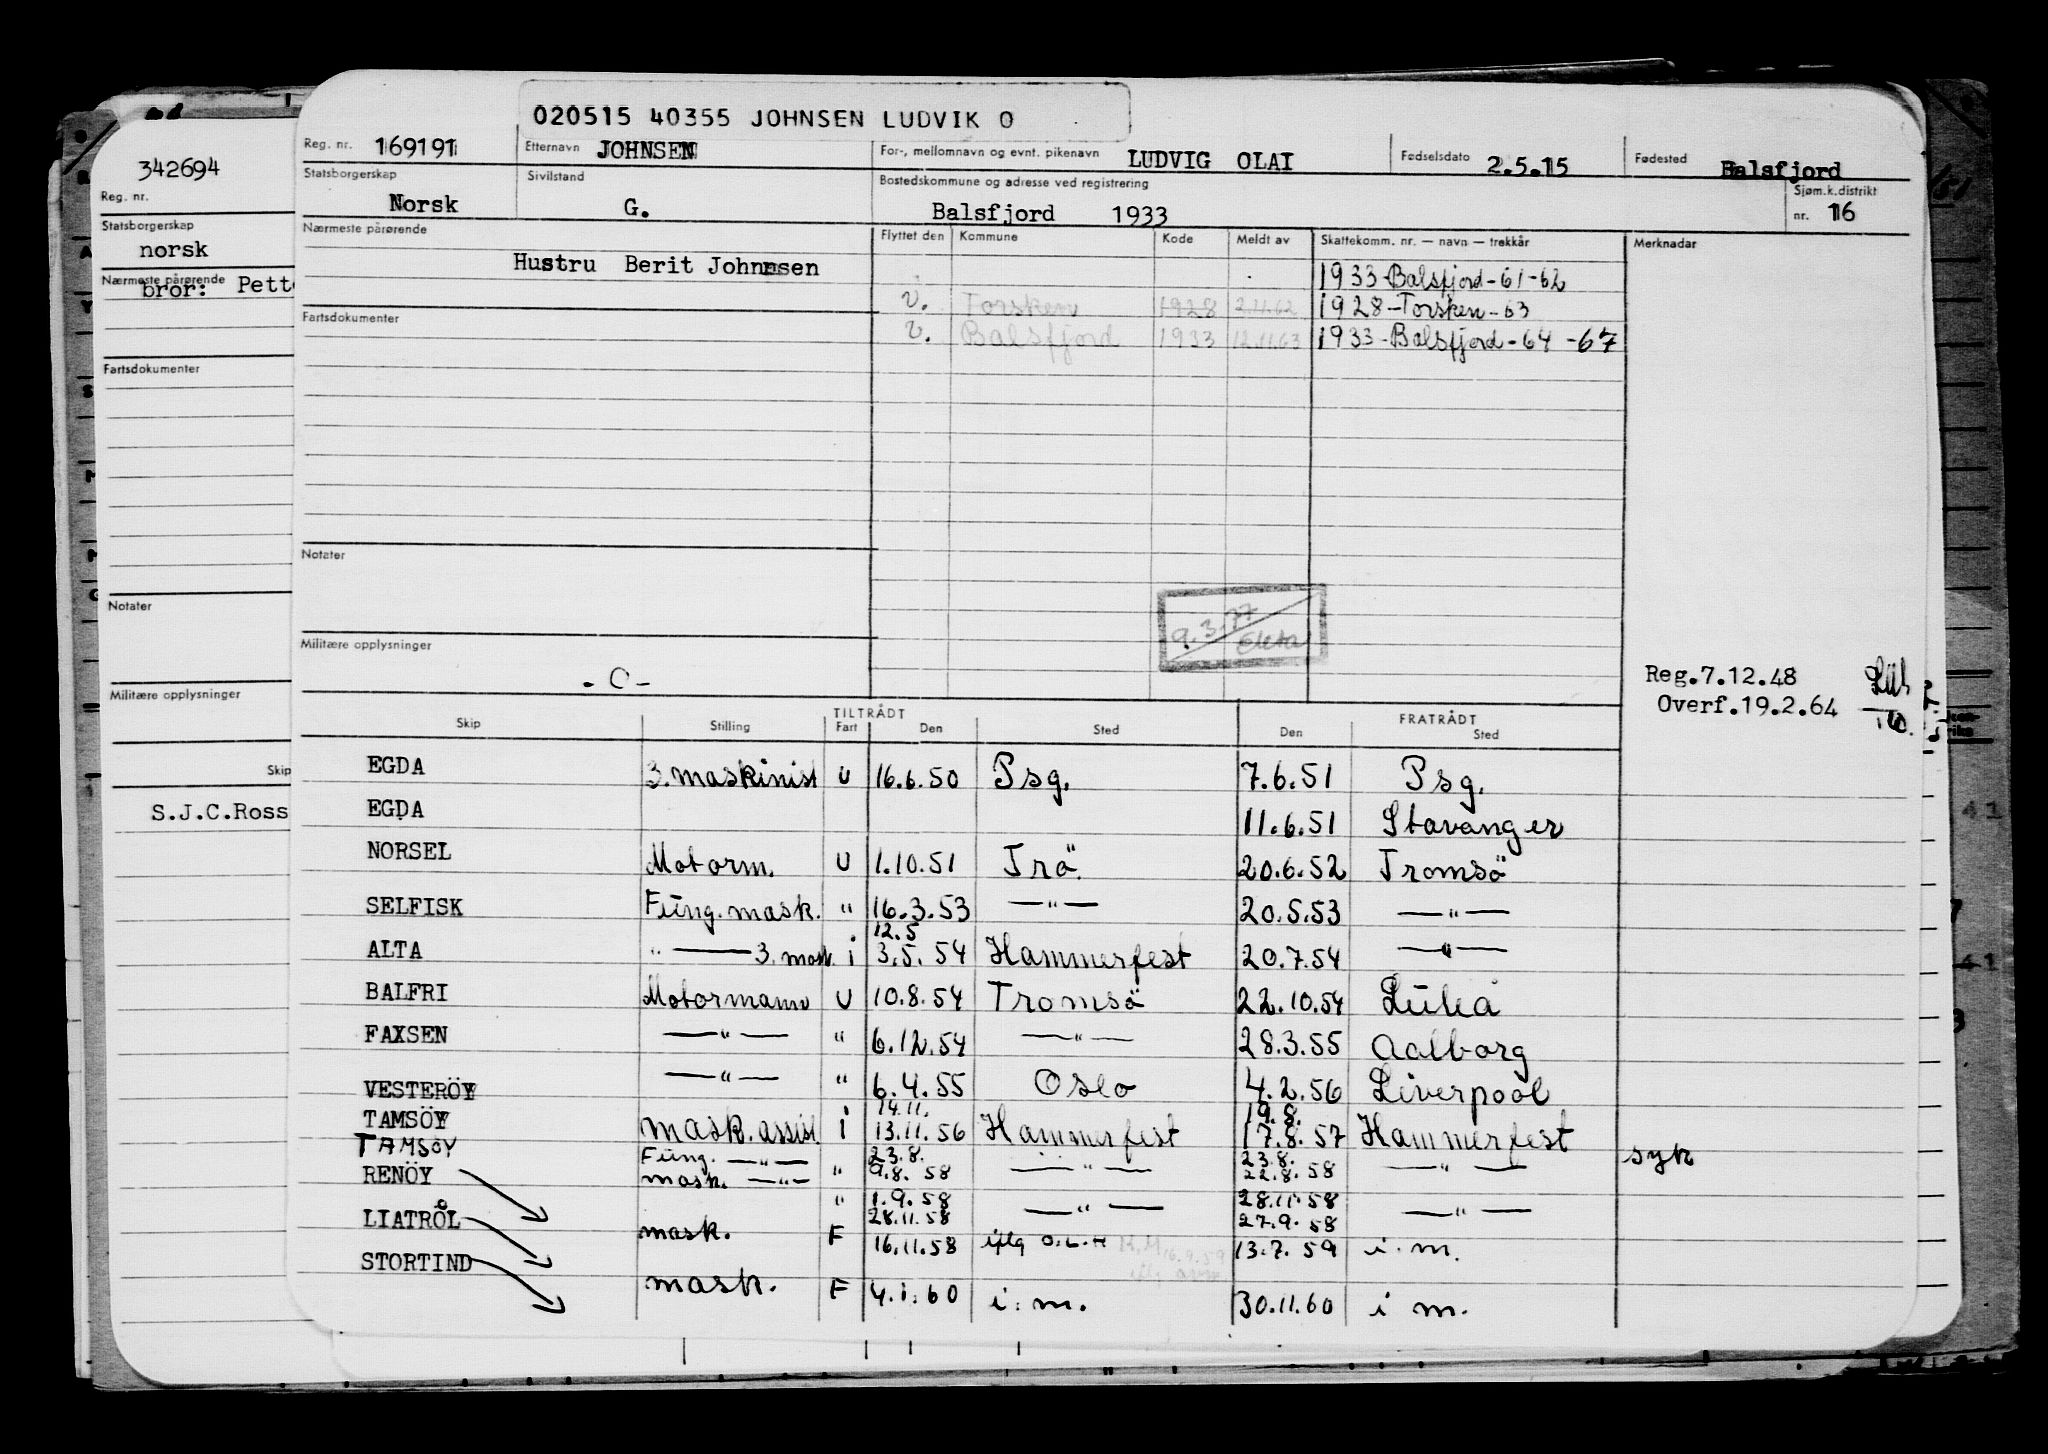 020515 40355 JOHNSEN LUDVIK O
Reg. nr. 169191 Etternavn JOHNSEN For-, mellomnavn og evnt. pikenavn LUDVIG OLAI Fødselsdato 2.5.15 Fødested Balsfjord
Statsborgerskap Norsk Sivilstand G. Bostedskommune og adresse ved registrering Balsfjord 1933 Sjøm.k.distrikt nr. 16
Nærmeste pårørende Flyttet den Kommune Kode Meldt av Skattekomm. nr. — navn — trekkår Merknader
Hustru Berit Johnnsen 1933-Balsfjord-61-62
v. Torsken 1928 2.11.62 1928-Torsken-63
Fartsdokumenter v. Balsfjord 1933 12.11.63 1933-Balsfjord-64-67
Notater
9.3.77
Militære opplysninger
- O -
Reg.7.12.48
Overf.19.2.64
Skip Stilling TILTRÅDT Fart Den Sted FRATRÅDT Den Sted
EGDA 3.maskinist U 16.6.50 Psg. 7.6.51 Psg.
EGDA 11.6.51 Stavanger
NORSEL Motorm. U 1.10.51 Trö 20.6.52 Tromsö
SELFISK Fung.mask. " 16.3.53 —"— 20.5.53 —"—
12.5
ALTA " — 3. mask. i 3.5.54 Hammerfest 20.7.54 —"—
BALFRI Motormann U 10.8.54 Tromsö 22.10.54 Luleå
FAXSEN —"— " 6.12.54 —"— 28.3.55 Aalborg
VESTERÖY —"— " 6.4.55 Oslo 4.2.56 Liverpool
14.11. 19.8.
TAMSÖY mask.assist. i 13.11.56 Hammerfest 17.8.57 Hammerfest
TAMSÖY Fung. —"— 23.8. 23.8. syk
RENÖY mask. —"— " 9.8.58 —"— 22.8.58 —"—
" 1.9.58 —"— 28.11.58 —"—
28.11.58 27.9.58
LIATRÅL mask. F 16.11.58 iflg O.L.H 16.9.59 13.7.59 i.m.
STORTIND mask. F 4.1.60 i.m. 30.11.60 i m.
342694
Reg. nr.
Statsborgerskap
norsk
Nærmeste pårørende
bror:
Fartsdokumenter
Notater
Militære opplysninger
Skip
S.J.C.Ross